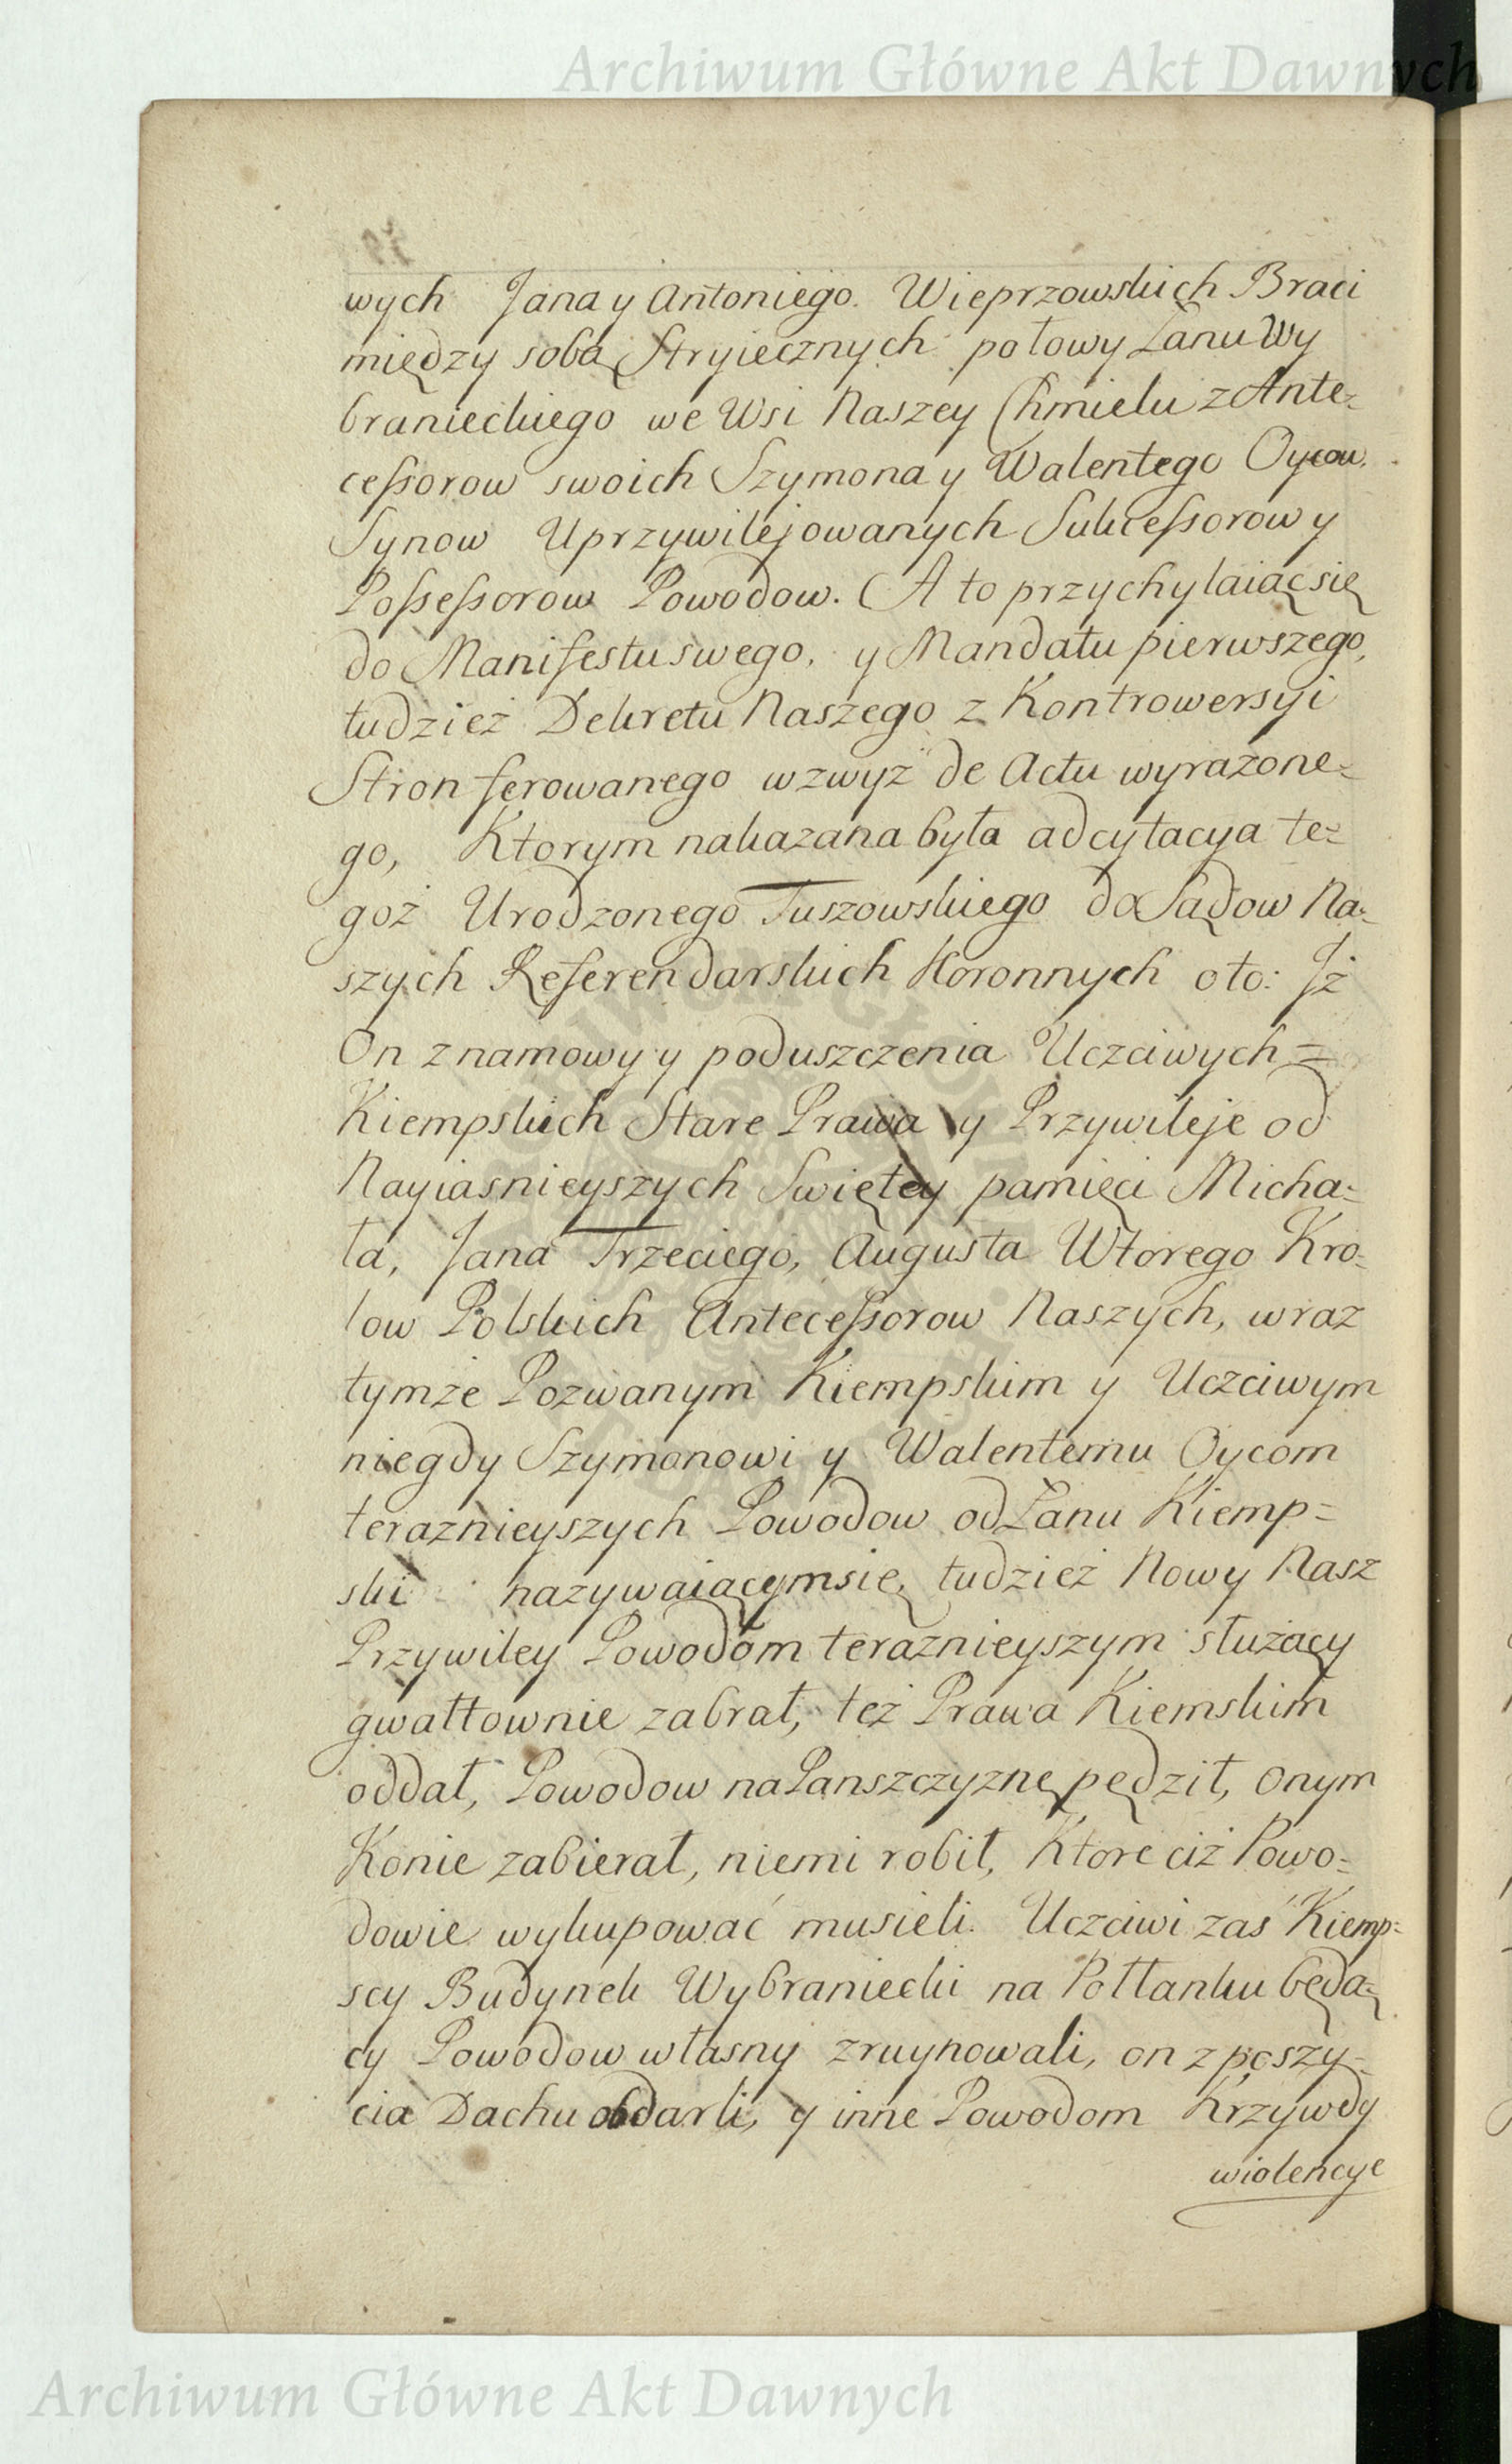 Archiwum Główne Akt Dawnych
wych Jana y Antoniego. Wieprzowskich Braci
między sobą Stryiecznych połowy Łanu Wy
branieckiego we Wsi Naszey Chmielu z Ante=
cessorow swoich Szymona y Walentego Oycow,
Synow Uprzywilejowanych Sukcessorow y
Possessorow Powodow. A to przychylaiąc się
do Manifestu swego, y Mandatu pierwszego,
tudzież Dekretu Naszego z Kontrowersyi
Stron ferowanego wzwyż de Actu wyrażone=
go, Ktorym nakazana była adcytacya te=
goż Urodzonego Tuszowskiego do Sądow Na=
szych Referendarskich Koronnych oto: Jż
On z namowy y poduszczenia Uczciwych =
Kiempskich Stare Prawa y Przywileje od
Nayiasnieyszych Swiętey pamięci Micha=
ła, Jana Trzeciego, Augusta Wtorego Kro=
low Polskich Antecessorow Naszych, wraz
tymże Pozwanym Kiempskim y Uczciwym
niegdy Szymonowi y Walentemu Oycom
teraznieyszych Powodow od Łanu Kiemp=
ski nazywaiącym się, tudzież Nowy Nasz
Przywiley Powodom teraznieyszym służący
gwałtownie zabrał, też Prawa Kiemskim
oddał, Powodow na Panszczyznę pędził, onym
Konie zabierał, niemi robił, Ktore ciż Powo=
dowie wykupować musieli. Uczciwi zaś Kiemp=
scy Budynek Wybraniecki na Połłanku będą=
cy Powodow własny zruynowali, on z poszy=
cia Dachu obdarli, y inne Powodom Krzywdy
wiolencye
Archiwum Główne Akt Dawnych